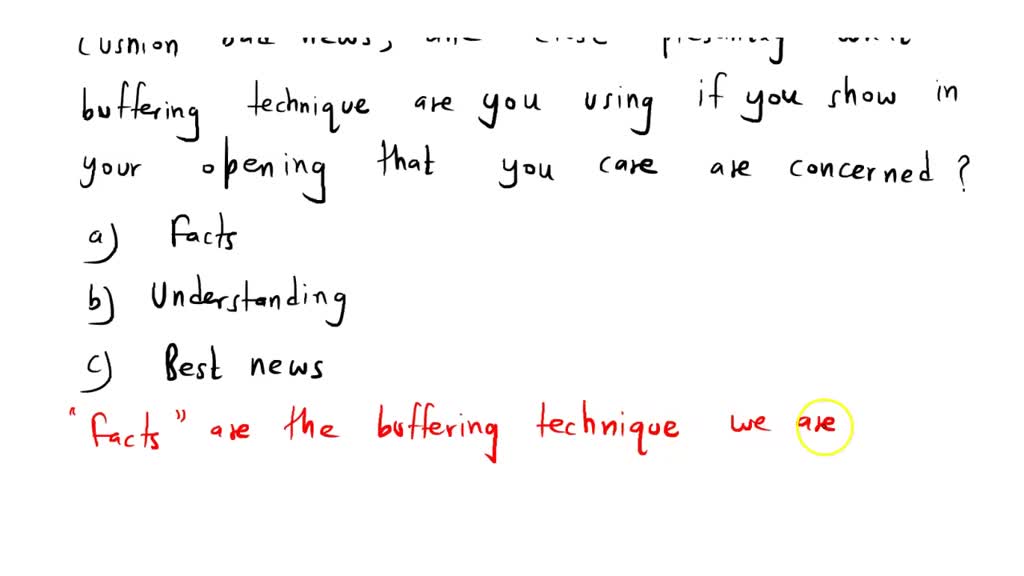 cushion bad news, and close pleasantly what
buffering technique are you using if you show in
your opening that you care are concerned ?
a) Facts
b) Understanding
c) Best news
"facts" are the buffering technique we are